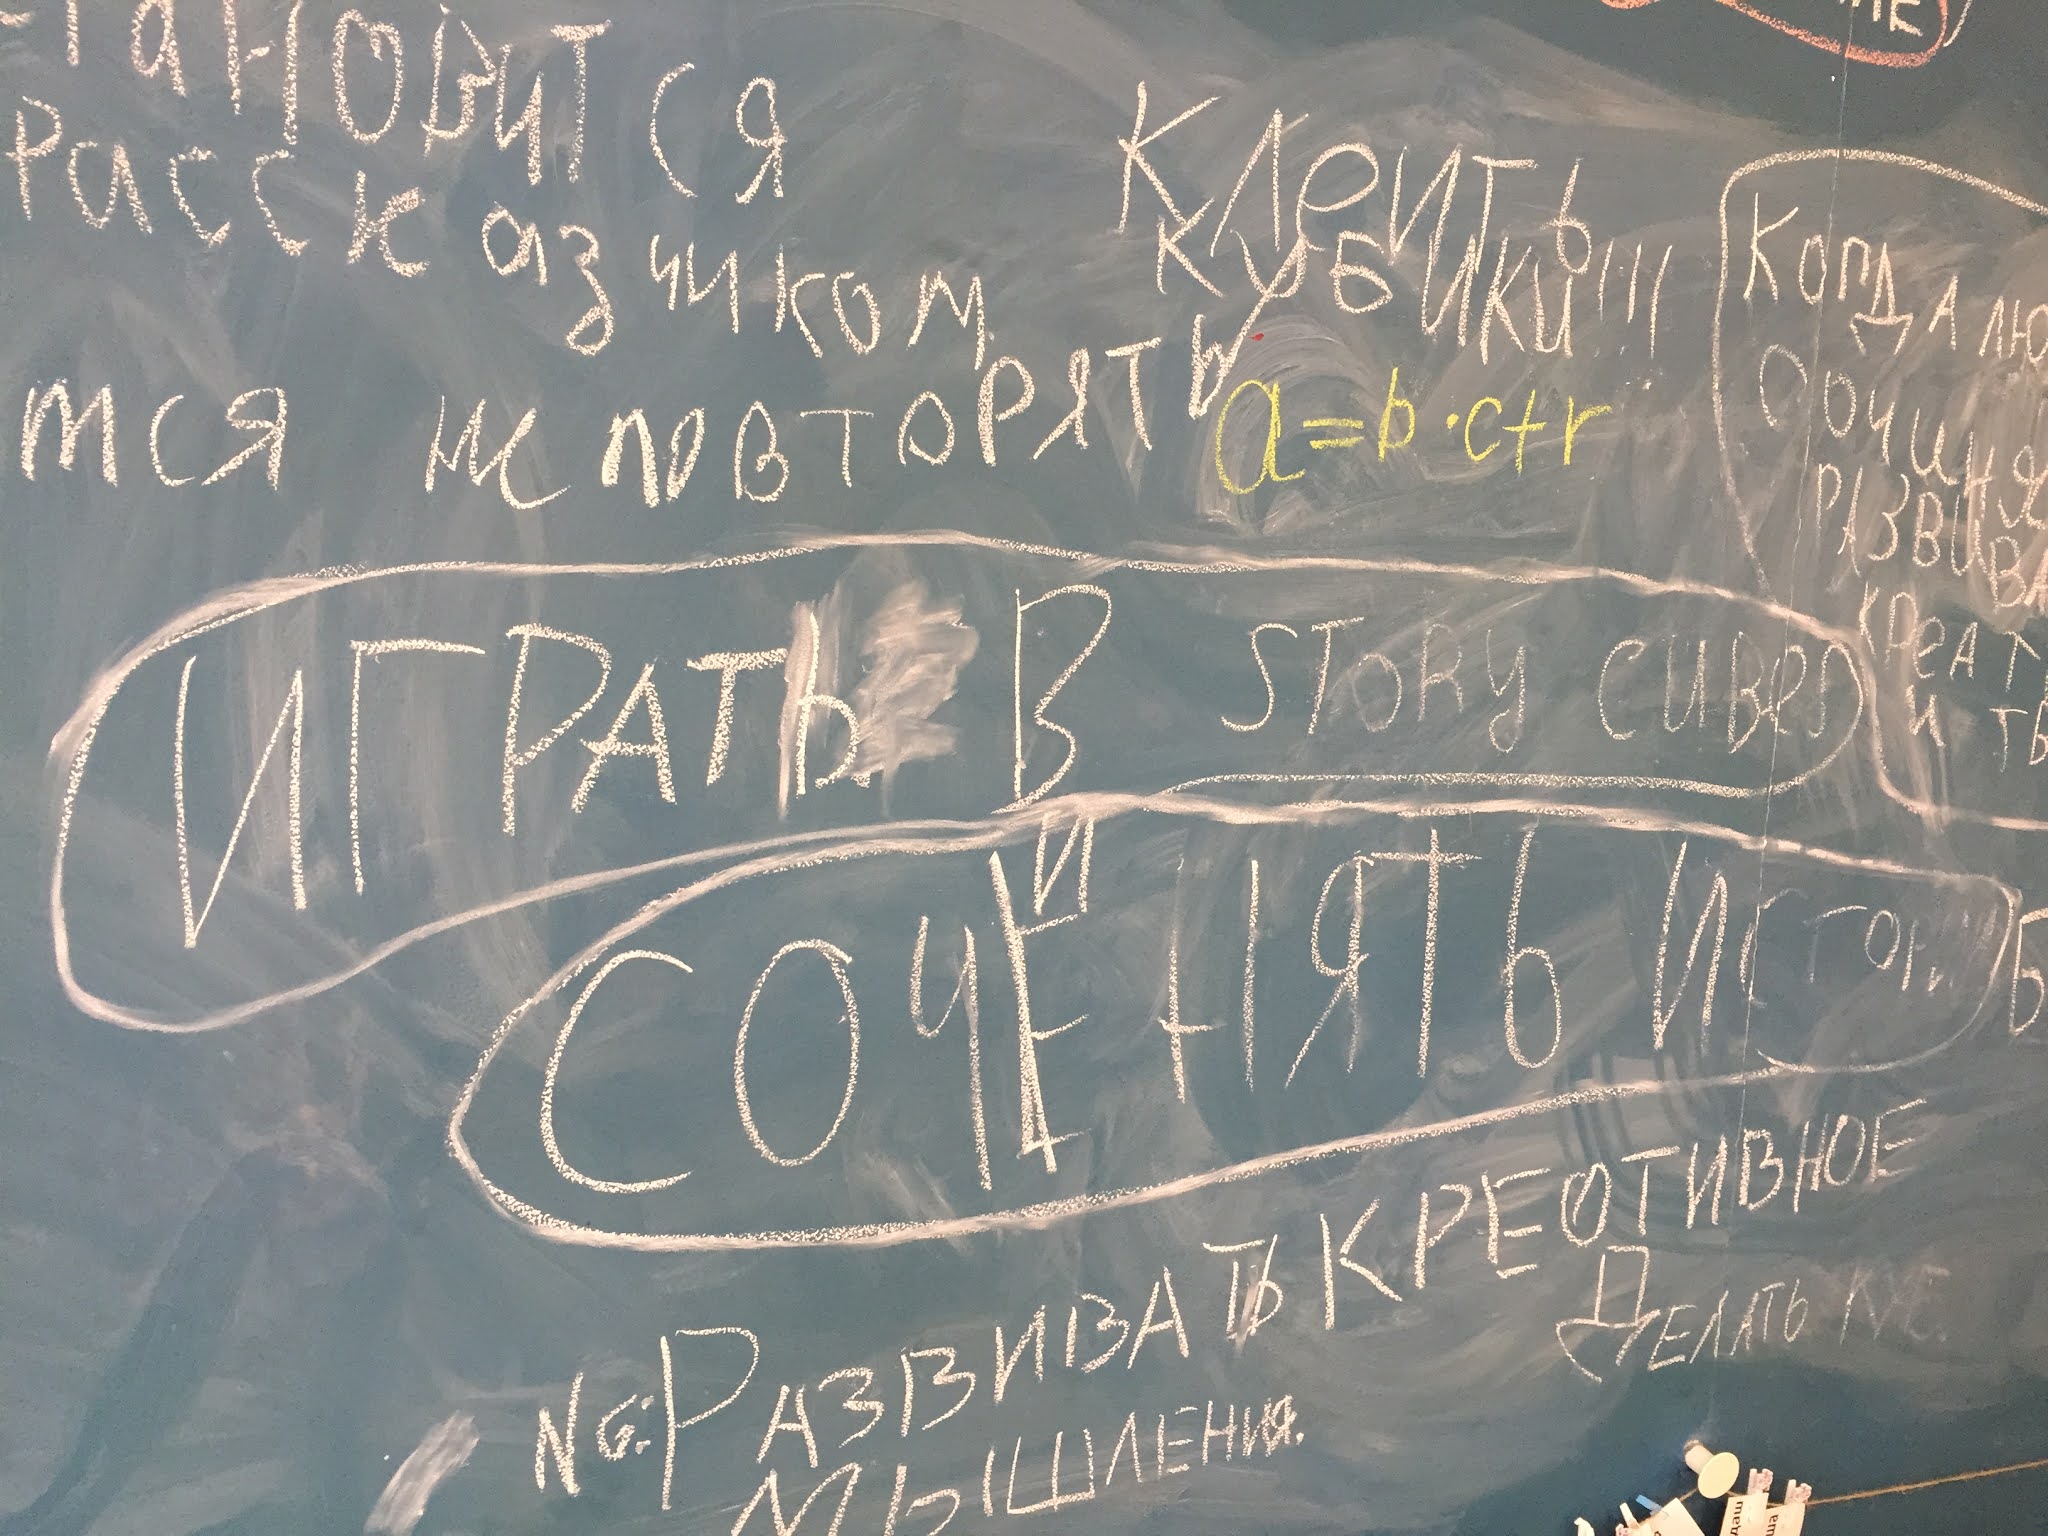 становится
рассказчиком
тся не повторять
КЛеИТЬ
КУБИКИ!!!
a=b·c+r
КОГДА лю
СОЧИНЯ
РАЗВИВА
КРеАТ
И ТЬ
ИГРАТЬ В STORY CUBES
И
СОЧЕНЯТЬ ИСТОРИИ
NG: РАЗВИВАТЬ КРЕОТИВНОЕ
МЫШЛЕНИЯ.
ДЕЛАТЬ